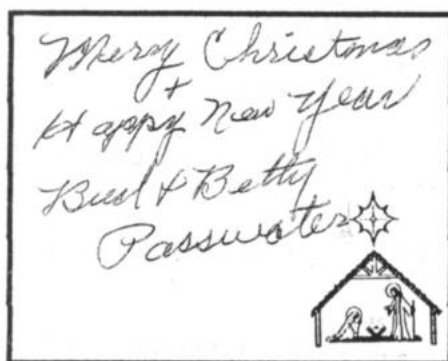 Merry Christmas
+
Happy New Year
Bud + Betty
Passwater